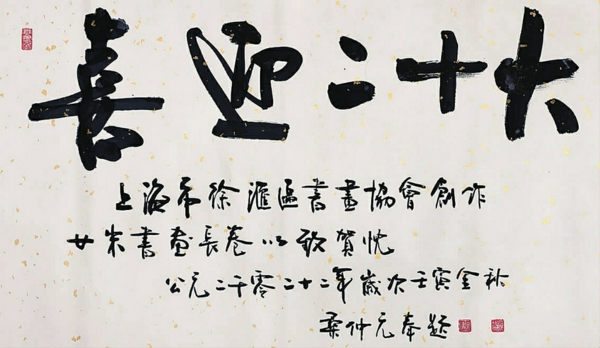 喜迎二十大
上海市徐滙區書畫協會創作
廿米書畫長卷以致賀忱
公元二千零二十二年歲次壬寅金秋
桑仲元奉題